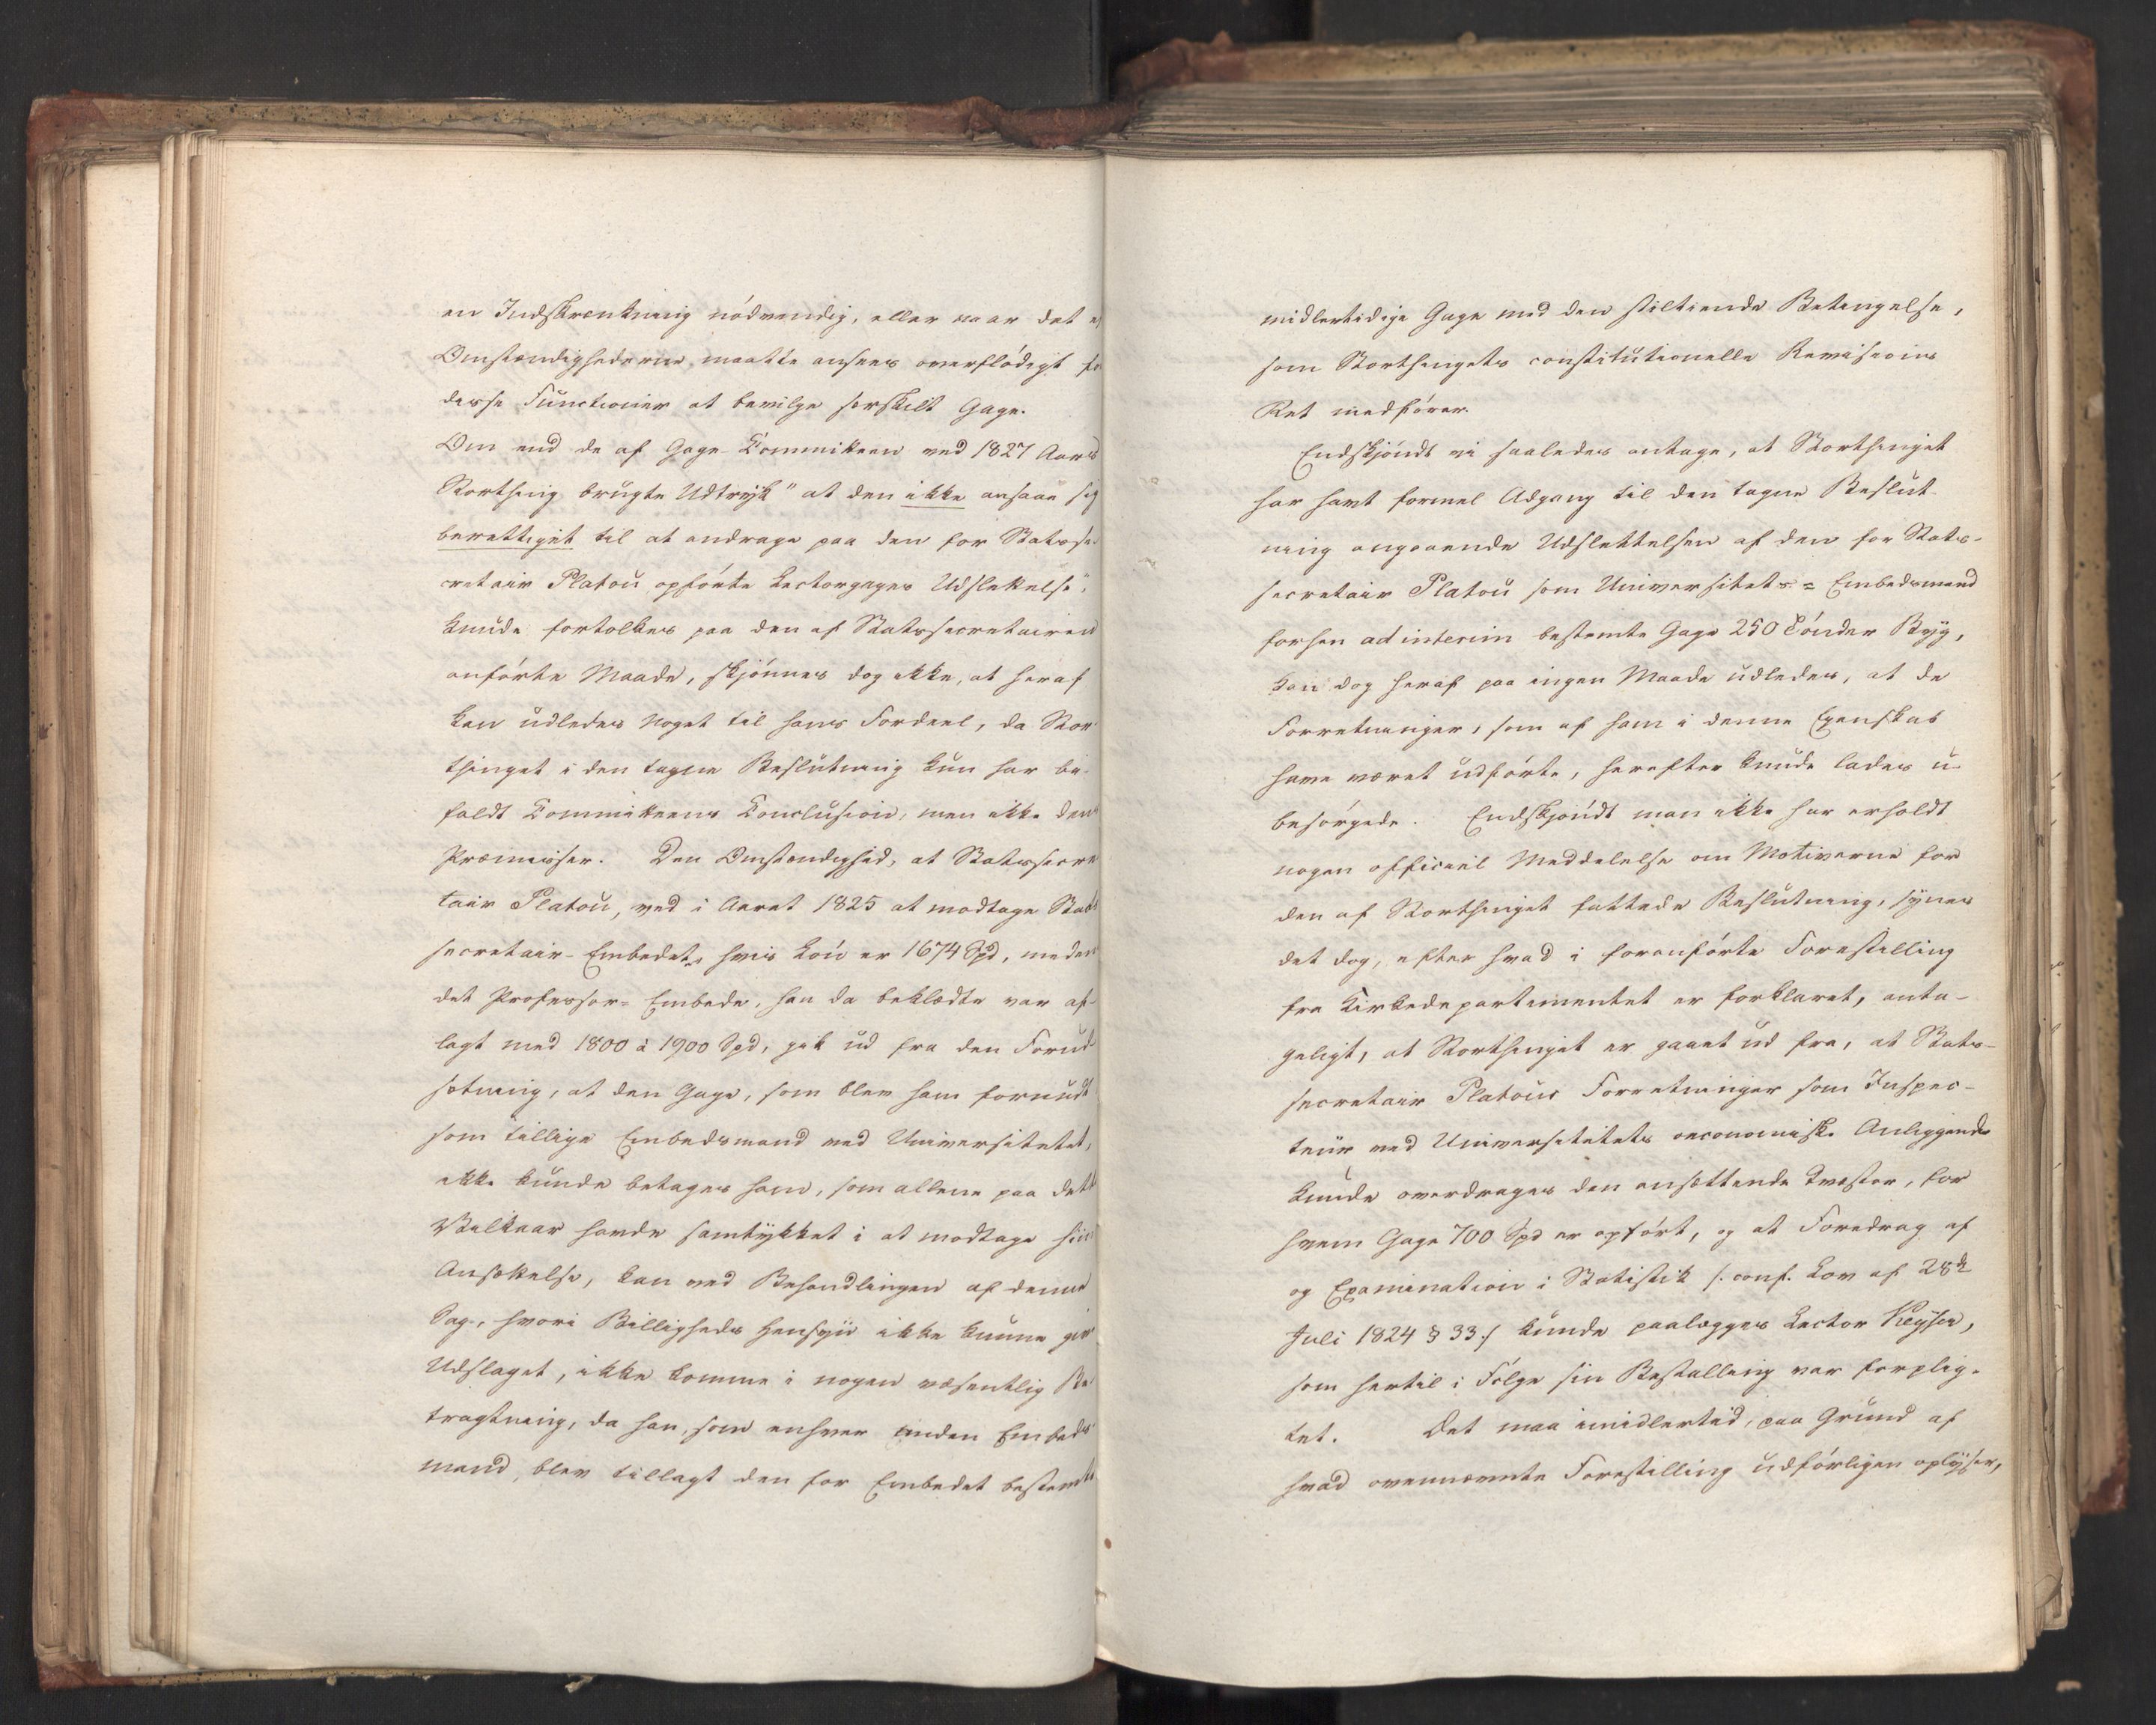 en Indskrænkning nödvendig, eller naar det e
Omstændighederne maatte ansees overflödigt fo
disse Functioner at bevilge særskilt Gage.
Om end de af Gage-Committeen ved 1827 Aars
Storthing brugte Udtryk "at den ikke ansaae sig
berettiget til at andrage paa den for Statsse-
cretair Platou opförte Lectorgages Udslettelse",
kunde fortolkes paa den af Statssecretairen
anförte Maade, skjönnes dog ikke, at heraf
kan udledes noget til hans Fordeel, da Stor-
thinget i den tagne Beslutning kun har bi-
faldt Committeens Conclusion, men ikke dens
Præmisser. Den Omstændighed, at Statssecre
tair Platou, ved i Aaret 1825 at modtage Stats
secretair-Embedet, hvis Lön er 1674 Spd, meden
det Professor-Embede, han da beklædte var af-
lagt med 1800 à 1900 Spd, gik ud fra den Forud
sætning, at den Gage, som blev ham forundt
som tillige Embedsmand ved Universitetet,
ikke kunde betages ham, som allene paa dette
Vilkaar havde samtykket i at modtage hiin
Ansættelse, kan ved Behandlingen af denne
Sag, hvori Billigheds Hensyn ikke kunne give
Udslaget, ikke komme i nogen væsentlig Be
tragtning, da han, som enhver anden Embeds
mand, blev tillagt den for Embedet bestemte
midlertidige Gage med den stiltiende Betingelse,
som Storthingets constitutionelle Revisions
Ret medförer.
Endskjöndt vi saaledes antage, at Storthinget
har havt formel Adgang til den tagne Beslut-
ning angaaende Udslettelsen af den for Stats-
secretair Platou som Universitets-Embedsmand
forhen ad interim bestemte Gage 250 Tönder Byg,
kan dog heraf paa ingen Maade udledes, at de
Forretninger, som af ham i denne Egenskab
have været udförte, herefter kunde lades u-
besörgede. Endskjöndt man ikke har erholdt
nogen officiel Meddelelse om Motiverne for
den af Storthinget fattede Beslutning, synes
det dog, efter hvad i foranförte Forestilling
fra Kirkedepartementet er forklaret, anta-
geligt, at Storthinget er gaaet ud fra, at Stats-
secretair Platous Forretninger som Inspec-
teur ved Universitetets oeconomiske Anliggende
kunde overdrages den ansættende Qvæstor, for
hvem Gage 700 Spd er opfört, og at Foredrag af
og Examination i Statistik /: conf. Lov af 28de
Juli 1824 § 33 :/ kunde paalægges Lector Keyser,
som hertil i Fölge sin Bestalling var forplig-
tet. Det maa imidlertid, paa Grund af
hvad ovennævnte Forestilling udförligen oplyser,